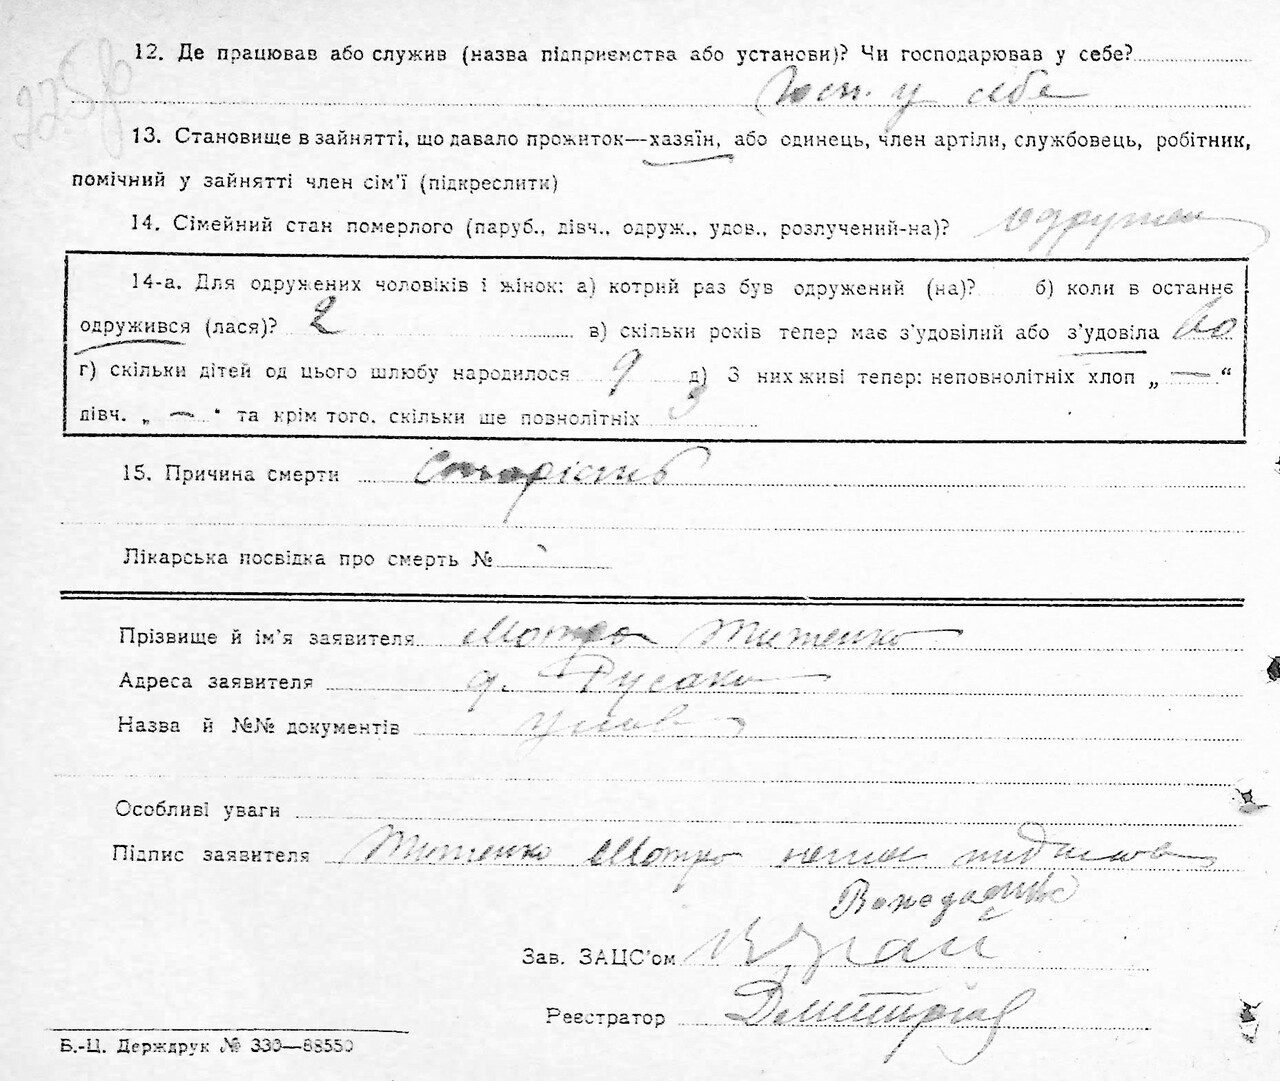 225
12. Де працював або служив (назва підприємства або установи)? Чи господарював у себе?
Госп. у себе
13. Становище в зайнятті, що давало прожиток—хазяїн, або одинець, член артіли, службовець, робітник,
помічний у зайнятті член сім'ї (підкреслити)
14. Сімейний стан померлого (паруб., дівч., одруж., удов., розлучений-на)? одружен
14-а. Для одружених чоловіків і жінок: а) котрий раз був одружений (на)? б) коли в останнє
одружився (лася)? 2 в) скільки років тепер має з'удовілий або з'удовіла 60
г) скільки дітей од цього шлюбу народилося 9 д) З них живі тепер: неповнолітніх хлоп „ — “
дівч. „ — “ та крім того, скільки ще повнолітніх 3
15. Причина смерти старість
Лікарська посвідка про смерть №
Прізвище й ім'я заявителя Мотря Титенко
Адреса заявителя д. Русаки
Назва й №№ документів
Особливі уваги
Підпис заявителя Титенко Мотря
Зав. ЗАЦС'ом
Реєстратор
Б.-Ц. Держдрук № 330—88550